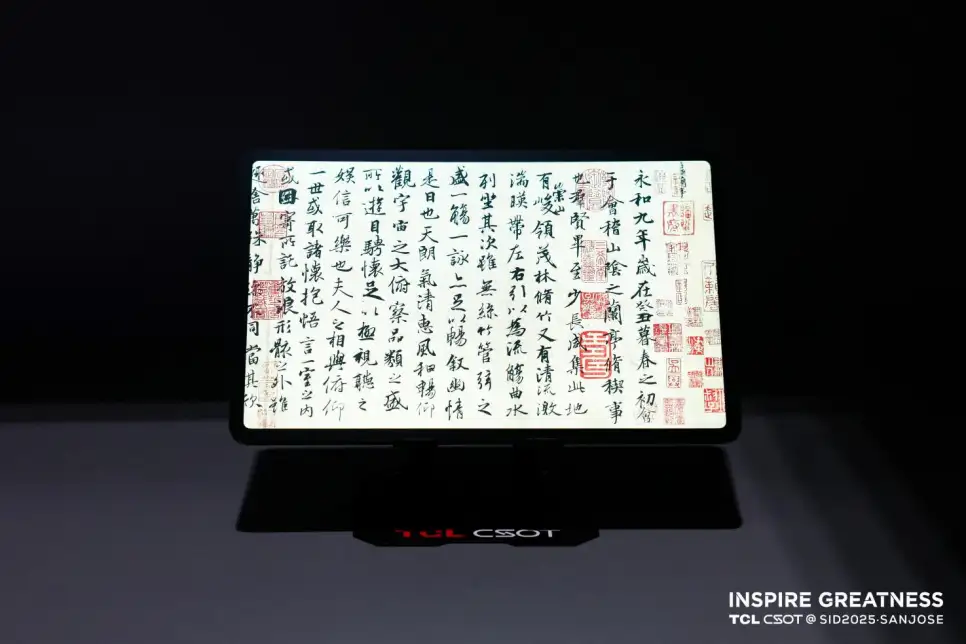 永和九年歲在癸丑暮春之初會
于會稽山陰之蘭亭脩稧事
也羣賢畢至少長咸集此地
有崇山峻領茂林脩竹又有清流激
湍暎帶左右引以為流觴曲水
列坐其次雖無絲竹管弦之
盛一觴一詠亦足以暢叙幽情
是日也天朗氣清惠風和暢仰
觀宇宙之大俯察品類之盛
所以遊目騁懷足以極視聽之
娛信可樂也夫人之相與俯仰
一世或取諸懷抱悟言一室之內
或因寄所託放浪形骸之外雖
萬殊靜不同當其欣
TCL CSOT
INSPIRE GREATNESS
TCL CSOT @ SID2025·SANJOSE